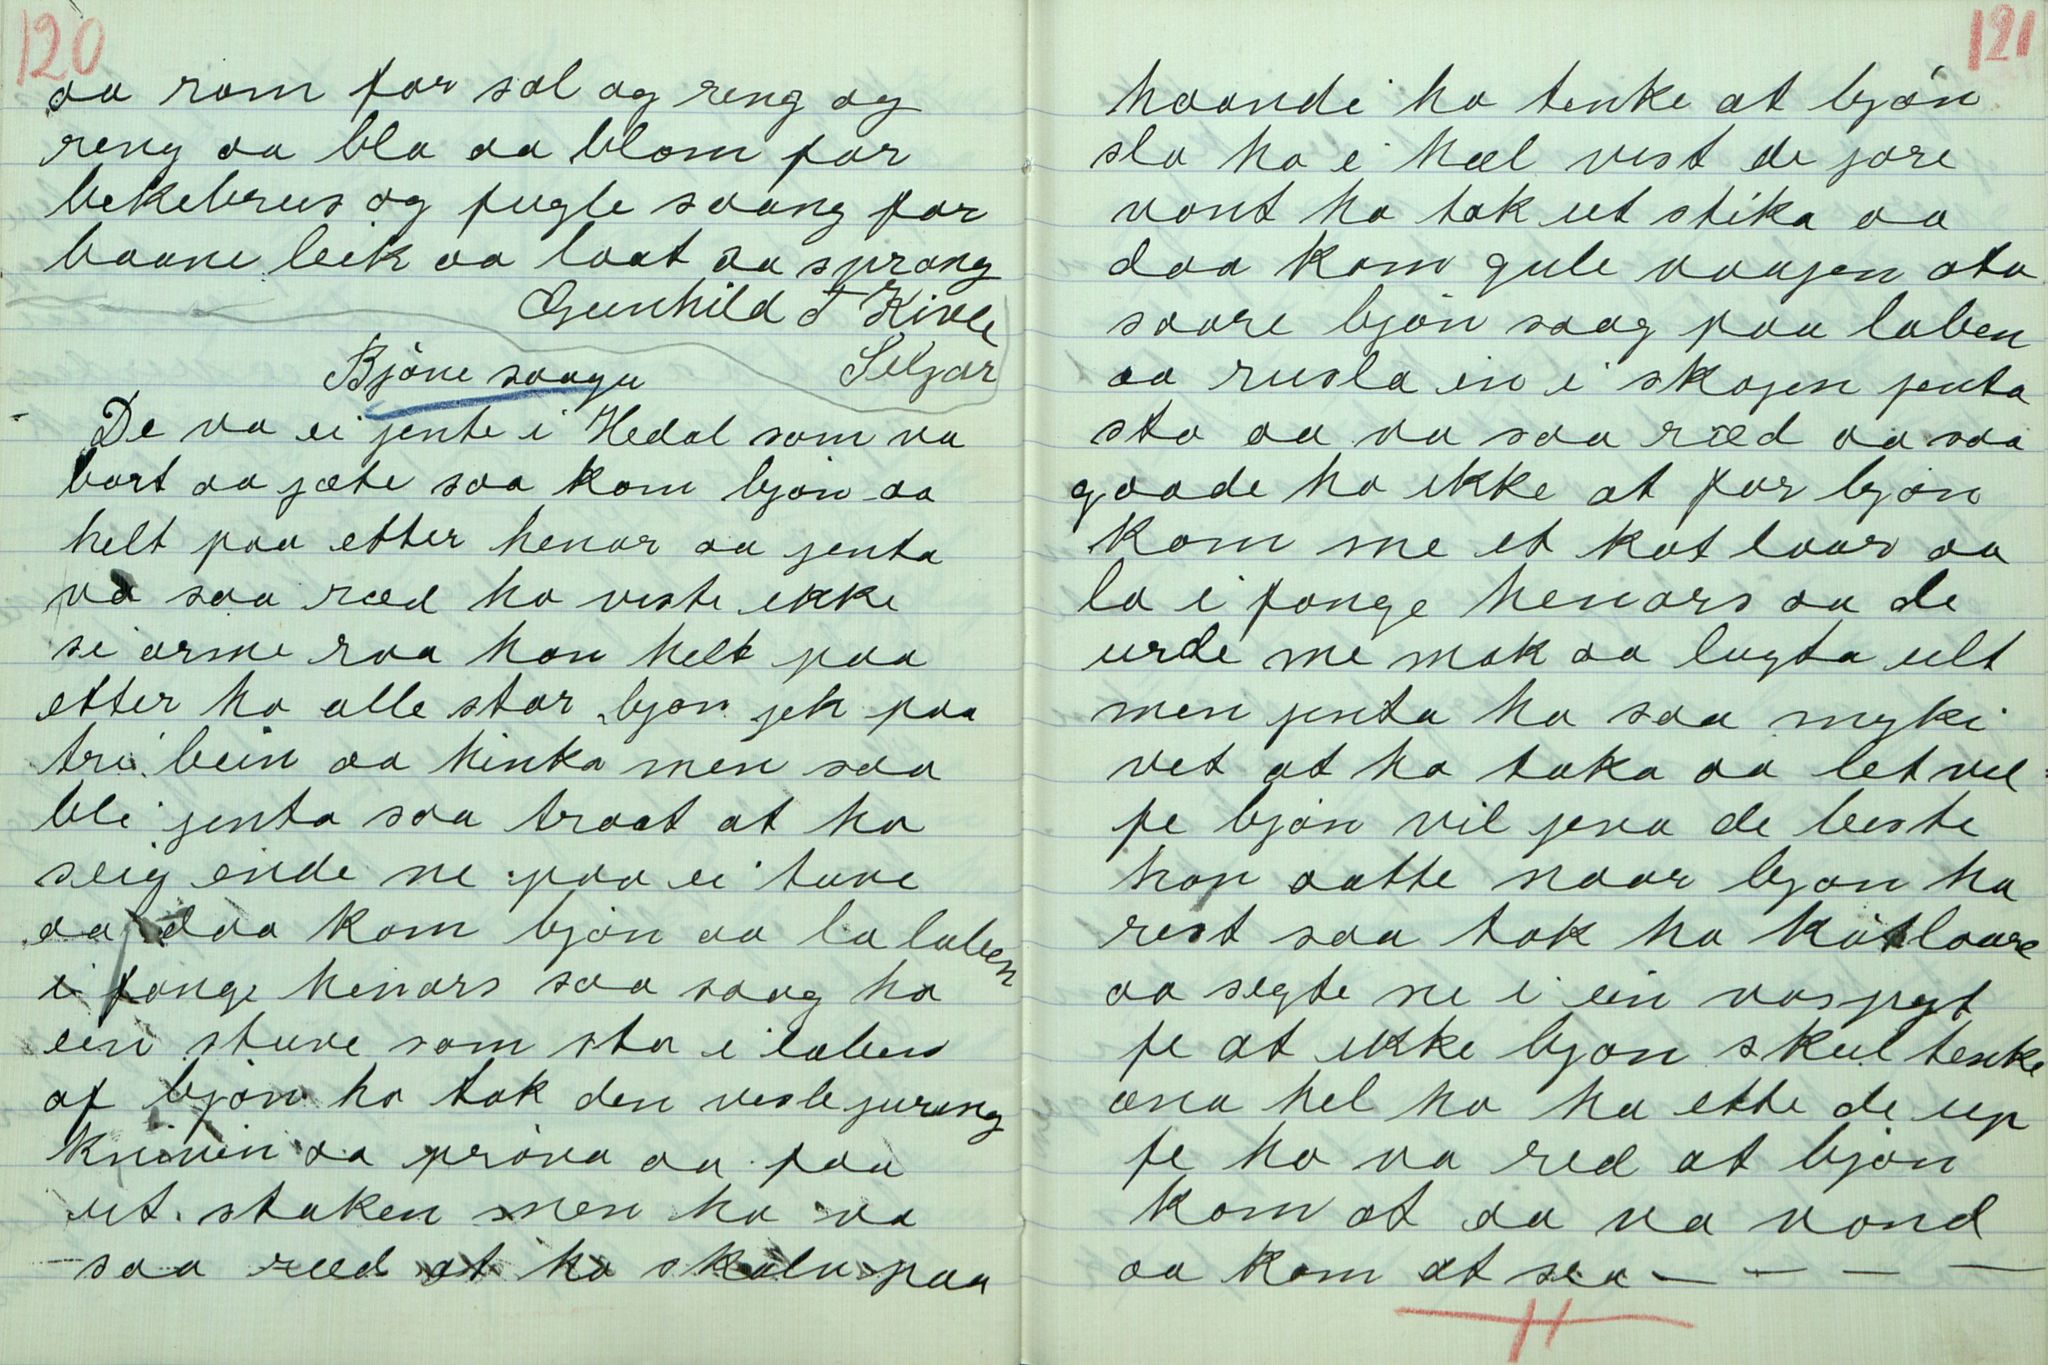 120
aa rom for sol og reng og
reng aa bla aa blom for
bekebrus og fugle saang for
baane leik aa laat aa sprang
Gunhild T Kivle
Seljor
Bjöne saagu
De va ei jente i Hedal som va
bort aa jæte saa kom bjön aa
helt paa etter henar aa jenta
va saa ræd ho viste ikke
si arme raa han helt paa
etter ho alle star bjön jek paa
tri bein aa hinka men saa
blei jenta saa traat at ho
seig ende ne paa ei tuve
aa daa kom bjön aa la laben
i fange henars saa saag ho
ein stuve som sto i laben
af bjön ho tok den vesle jureng
knivin aa pröva aa faa
ut staken men ho va
saa ræd at ho skalv paa
121
haandi ho tenke at bjön
slo ho i hæl vist de jore
vont ho tok ut stika aa
daa kom gule vaagen ata
saare bjön saag paa laben
aa rusla in i skogen jenta
sto aa va saa ræd aa saa
gaade ho ikke at for bjön
kom me et køt laar aa
la i fange henars aa de
urde me mak aa lugta ilt
men jenta ha saa myki
vet at ho taka aa let vel
fe bjön vil jeva de beste
han aatte naar bjön ha
rest saa tok ho köt laare
aa segte ne i ein vaspyt
fe at ikke bjön skul tenke
ana hel ho ha ette de up
fe ho va red at bjön
kom at aa va vond
aa kom at saa — — — —